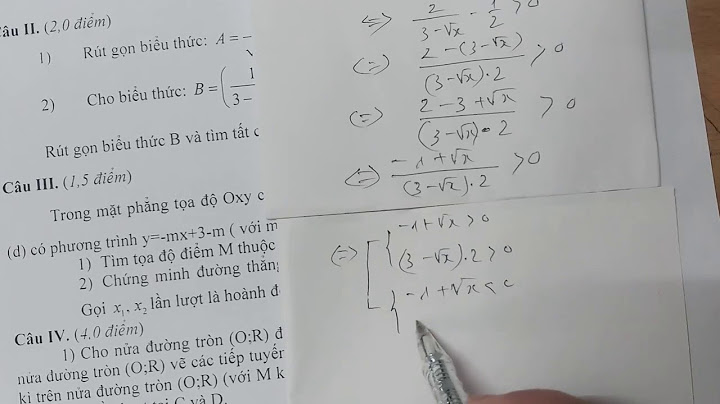 Câu II. (2,0 điểm)
1) Rút gọn biểu thức: A = –
2) Cho biểu thức: B = ( 1 / 3 –
Rút gọn biểu thức B và tìm tất c
Câu III. (1,5 điểm)
Trong mặt phẳng tọa độ Oxy c
(d) có phương trình y=-mx+3-m ( với m
1) Tìm tọa độ điểm M thuộc
2) Chứng minh đường thẳng
Gọi x₁, x₂ lần lượt là hoành đ
Câu IV. (4,0 điểm)
1) Cho nửa đường tròn (O;R) đ
nửa đường tròn (O;R) vẽ các tiếp tuyến
kì trên nửa đường tròn (O;R) (với M k
C và D.
<=> 2 / (3-√x) - 1/2 > 0
(=) (2-(3-√x)) / ((3-√x).2) > 0
(=) (2-3+√x) / ((3-√x).2) > 0
<=> (-1+√x) / ((3-√x).2) > 0
(=) [ { -1+√x > 0
(3-√x).2 > 0
{ -1+√x <